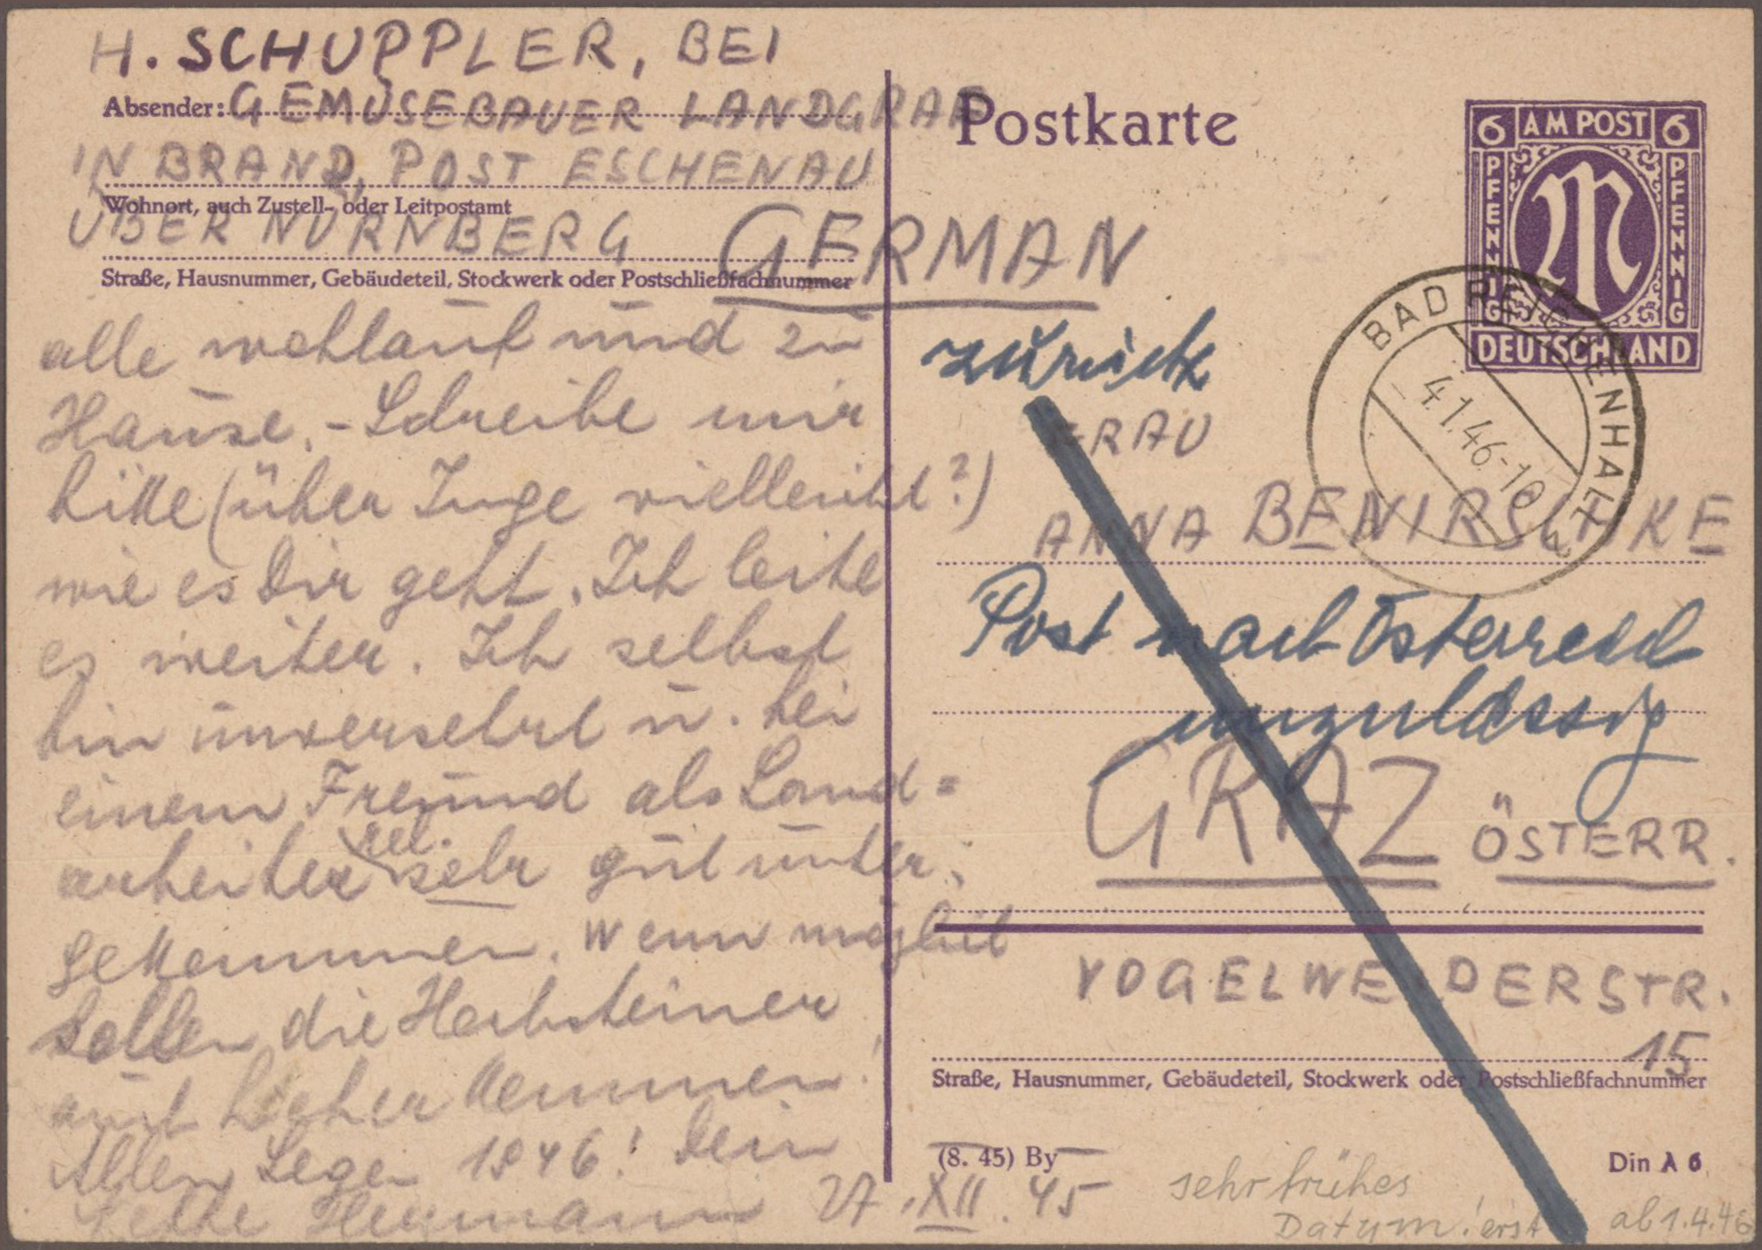 H. SCHUPPLER, BEI
Absender: GEMÜSEBAUER LANDGRAF
IN BRAND, POST ESCHENAU
Wohnort, auch Zustell- oder Leitpostamt
ÜBER NÜRNBERG GERMAN
Straße, Hausnummer, Gebäudeteil, Stockwerk oder Postschließfachnummer
alle wohlauf und zu
Hause. - Schreibe mir
bitte (über Inge vielleicht?)
wie es Dir geht. Ich leite
es weiter. Ich selbst
bin unversehrt u. bei
einem Freund als Land=
arbeiter rel. sehr gut unter,
gekommen. Wenn möglich
sollen die Herbsteiner
kommen!
Allen Segen 1946! Dein
Hermann 27.XII.45
Postkarte
6 AM POST 6
PFENNIG
M
PFENNIG
DEUTSCHLAND
BAD REICHENHALL
4.1.46-10
zurück
FRAU
ANNA BENIRSCHKE
Post nach Österreich
unzulässig
GRAZ ÖSTERR.
VOGELWEIDERSTR.
15
Straße, Hausnummer, Gebäudeteil, Stockwerk oder Postschließfachnummer
(8. 45) By
Din A 6
sehr frühes
Datum! erst ab 1.4.46